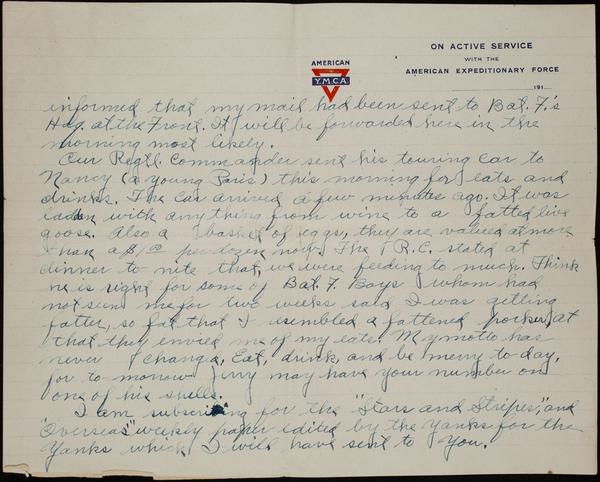 AMERICAN
Y.M.C.A.
ON ACTIVE SERVICE
WITH THE
AMERICAN EXPEDITIONARY FORCE
191
informed that my mail had been sent to Bat. F.'s
Hdq. at the Front. It will be forwarded here in the
morning most likely.
Our Regtl. Commander sent his touring car to
Nancy (a young Paris) this morning for eats and
drinks. The car arrived a few minutes ago. It was
laden with anything from wine to a fatted live
goose. Also a basket of eggs, they are valued at more
than a $1.00 per dozen now. The R.C. stated at
dinner to nite that, we were feeding to much. Think
he is right for some of Bat. F. Boys whom had
not seen me for two weeks said I was getting
fatter, so fat that I resembled a fattened porker, at
that they envied me of my eats. My motto has
never changed, Eat, drink, and be merry to-day,
for to-morow Jerry may have your number on
one of his shells.
I am subscribing for the "Stars and Stripes," and
"Overseas" weekly paper edited by the Yanks for the
Yanks which I will have sent to you.